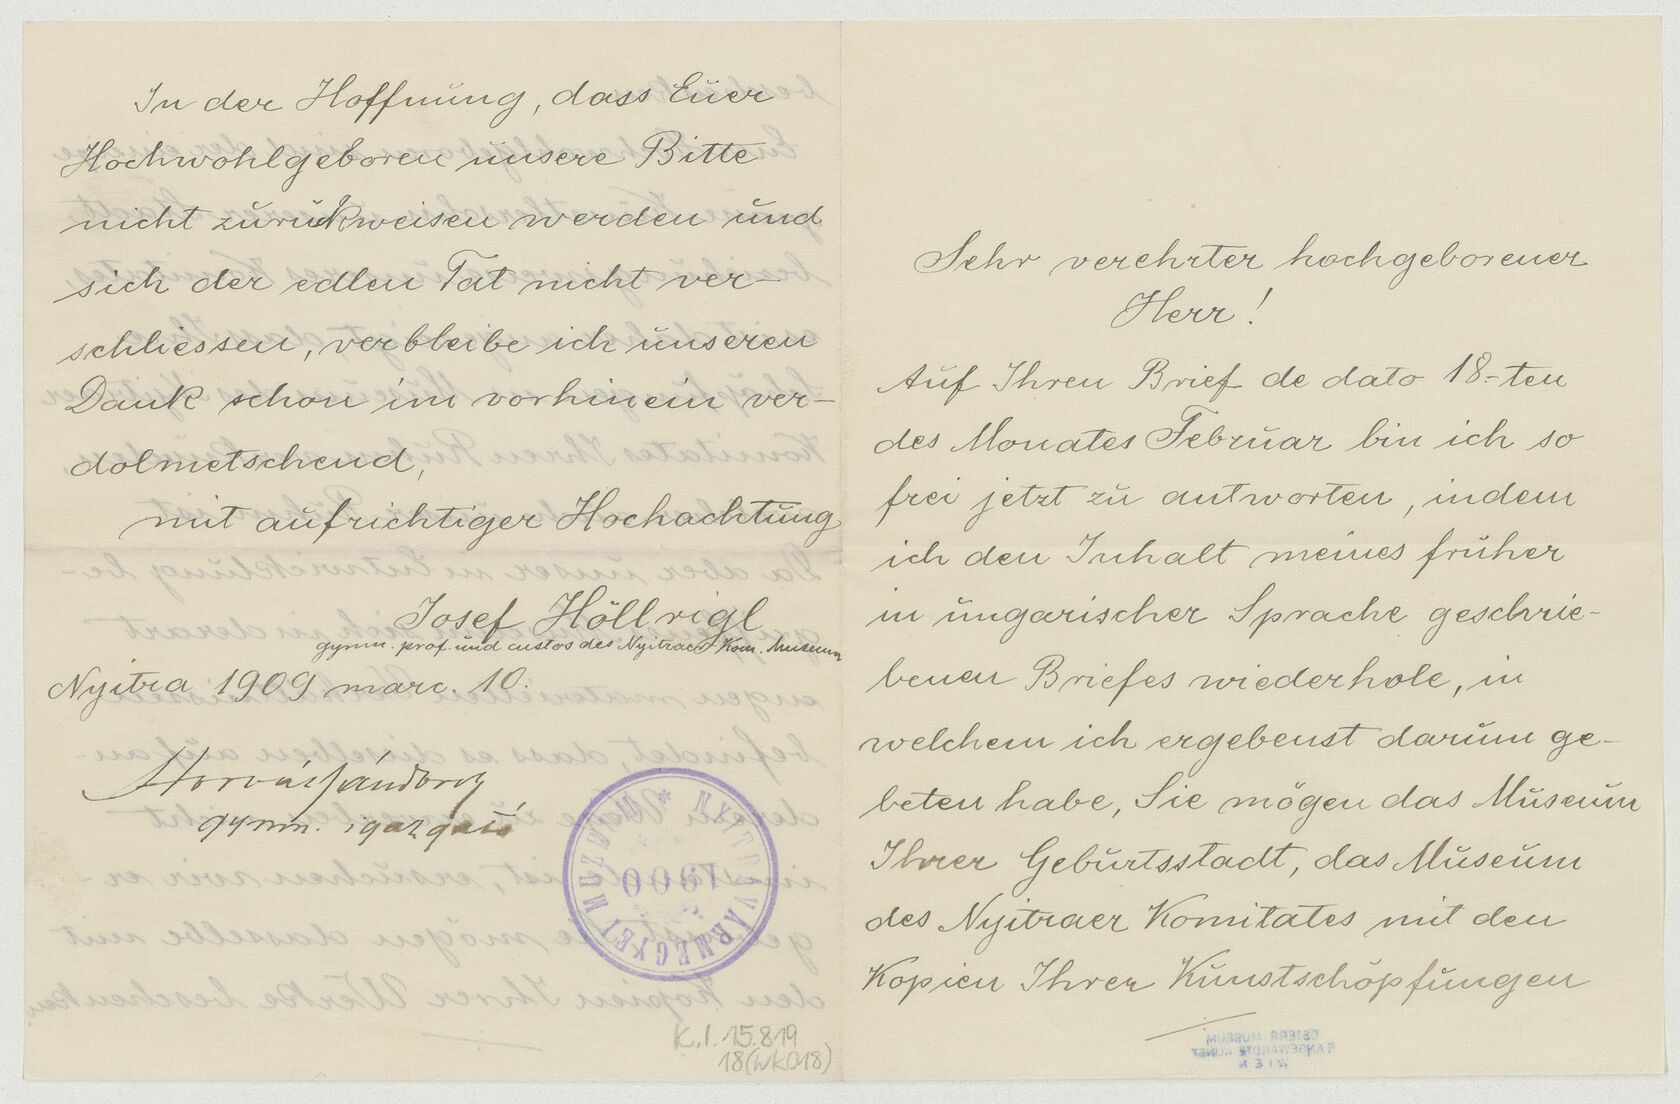 Sehr verehrter hochgeborener
Herr!
Auf Ihren Brief de dato 18-ten
des Monates Februar bin ich so
frei jetzt zu antworten, indem
ich den Inhalt meines früher
in ungarischer Sprache geschrie-
benen Briefes wiederhole, in
welchem ich ergebenst darum ge-
beten habe, Sie mögen das Museum
Ihrer Geburtsstadt, das Museum
des Nyitraer Komitates mit den
Kopien Ihrer Kunstschöpfungen
ÖSTERR MUSEUM
F. ANGEWANDTE KUNST
WIEN
In der Hoffnung, dass Euer
Hochwohlgeboren unsere Bitte
nicht zurückweisen werden und
sich der edlen Tat nicht ver-
schliessen, verbleibe ich unseren
Dank schon im vorhinein ver-
dolmetschend,
mit aufrichtiger Hochachtung
Josef Höllrigl
gymn. prof. und custos des Nyitraer Kom. Museum
Nyitra 1909 marc. 10.
gymn. igazgató
NYITRAVÁRMEGYEI MUZEUM *
1900
K.I. 15.819
18(WK018)